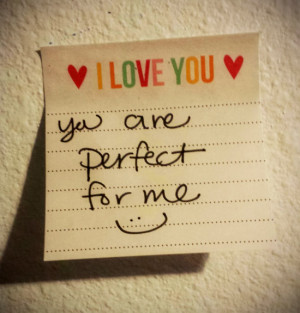 ♥ I LOVE YOU ♥
you are
perfect
for me